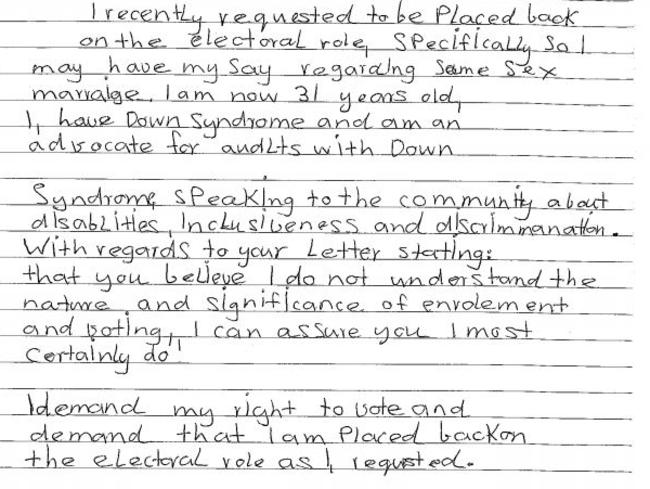 I recently requested to be Placed back
on the electoral role, Specifically So I
may have my Say regarding Same Sex
marraige. I am now 31 years old,
I, have Down Syndrome and am an
advocate for audlts with Down
Syndrome, sPeaking to the community about
disablities, Inclusiveness and discrimmanation.
With regards to your Letter stating:
that you believe I do not understand the
nature, and significance of enrolement
and voting, I can assure you I most
Certainly do"
I demand my right to vote and
demand that I am Placed back on
the electoral role as I, requsted.